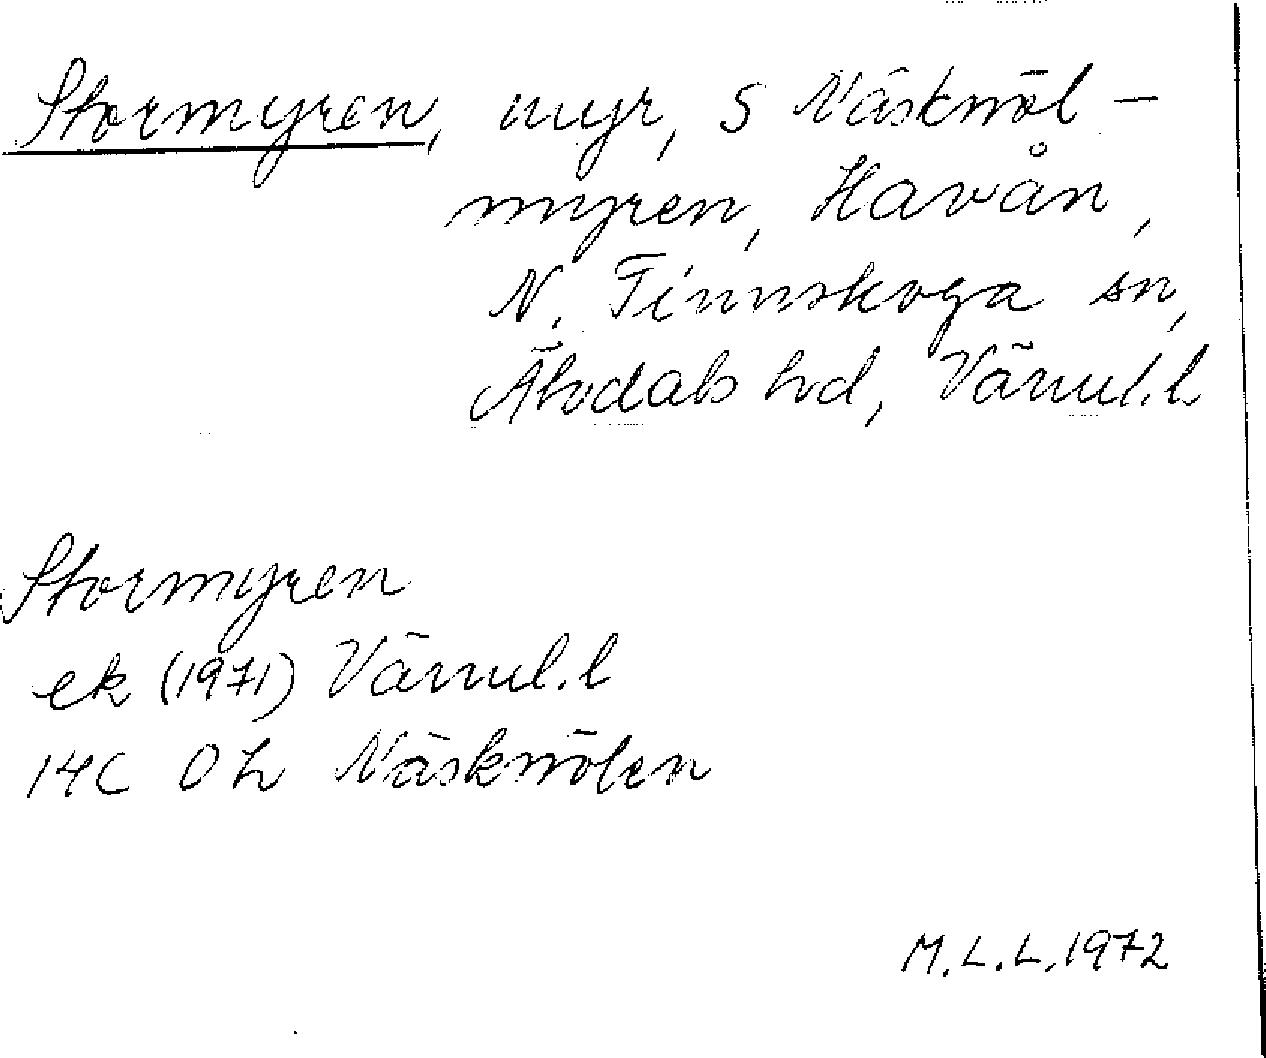 Stormyren, myr, S Näsknöl-
myren, Havån,
N. Finnskoga sn,
Älvdals hd, Värml. l.
Stormyren
ek (1971) Värml. l
14C 0h Näsknölen
M.L.L. 1972